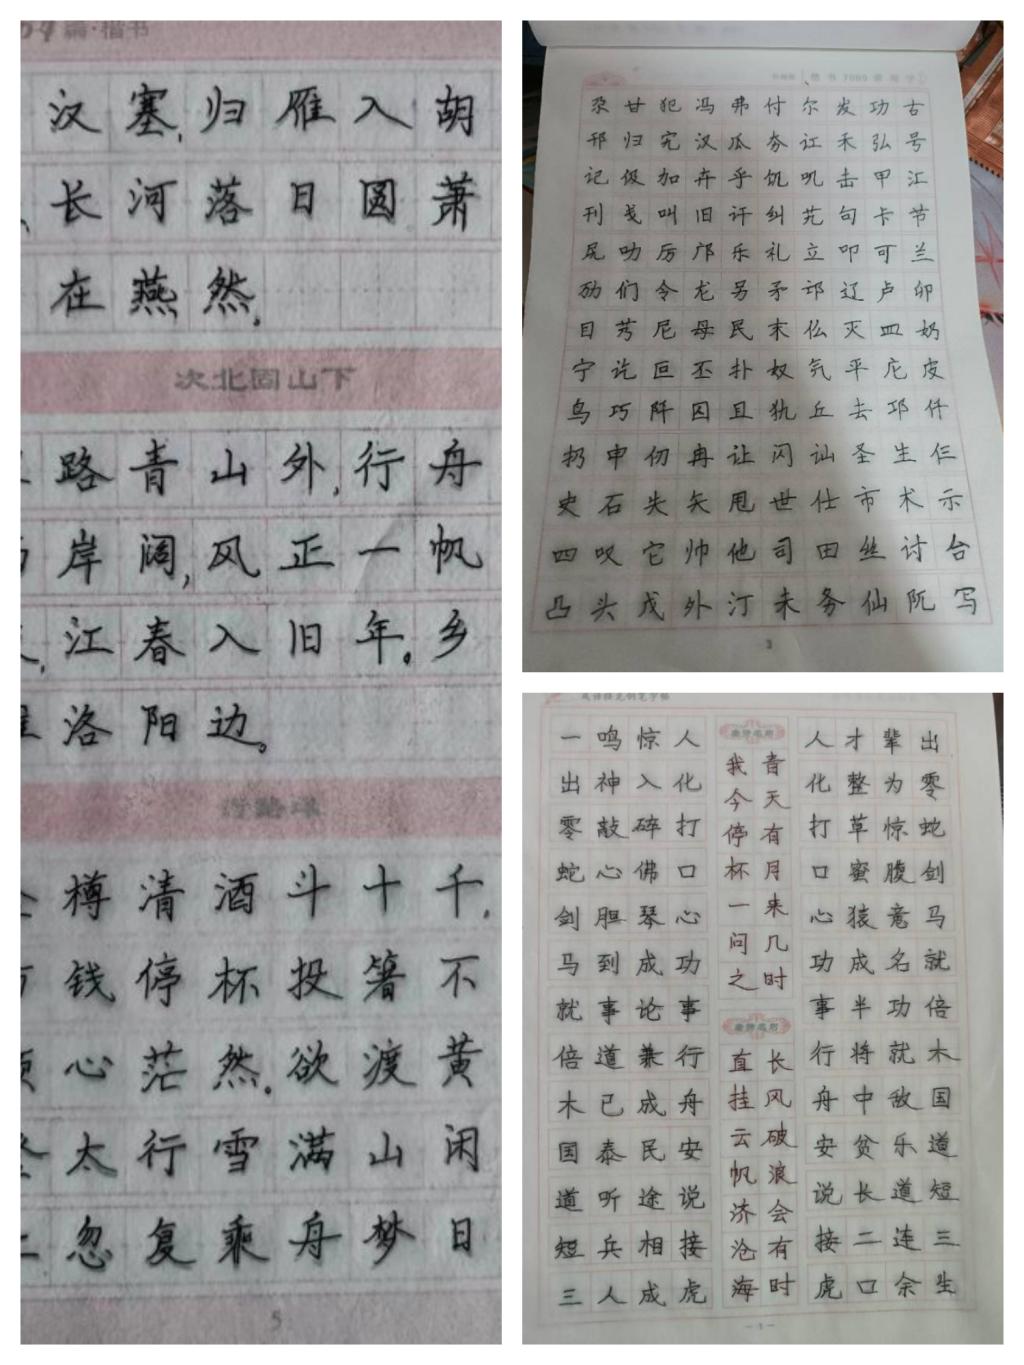 篇·楷书
汉塞,归雁入胡
长河落日圆萧
在燕然。
次北固山下
路青山外,行舟
岸阔,风正一帆
江春入旧年。乡
洛阳边。
行路难
樽清酒斗十千,
钱停杯投箸不
心茫然。欲渡黄
太行雪满山闲
忽复乘舟梦日
5
楷书7000常用字
尕甘犯冯弗付尔发功古
邗归宄汉瓜夯讧禾弘号
记伋加卉乎饥叽击甲汇
刊戋叫旧讦纠艽句卡节
尻叻厉邝乐礼立叩可兰
劢们令龙另矛邙辽卢卯
目艿尼母民末仫灭皿奶
宁讫叵丕扑奴氕平庀皮
鸟巧阡囚且犰丘去邛仟
扔申仞冉让闪讪圣生仨
史石失矢甩世仕市术示
四叹它帅他司田丝讨台
凸头戊外汀未务仙阢写
3
一鸣惊人
出神入化
零敲碎打
蛇心佛口
剑胆琴心
马到成功
就事论事
倍道兼行
木已成舟
国泰民安
道听途说
短兵相接
三人成虎
青天有月来几时
我今停杯一问之
长风破浪会有时
直挂云帆济沧海
人才辈出
化整为零
打草惊蛇
口蜜腹剑
心猿意马
功成名就
事半功倍
行将就木
舟中敌国
安贫乐道
说长道短
接二连三
虎口余生